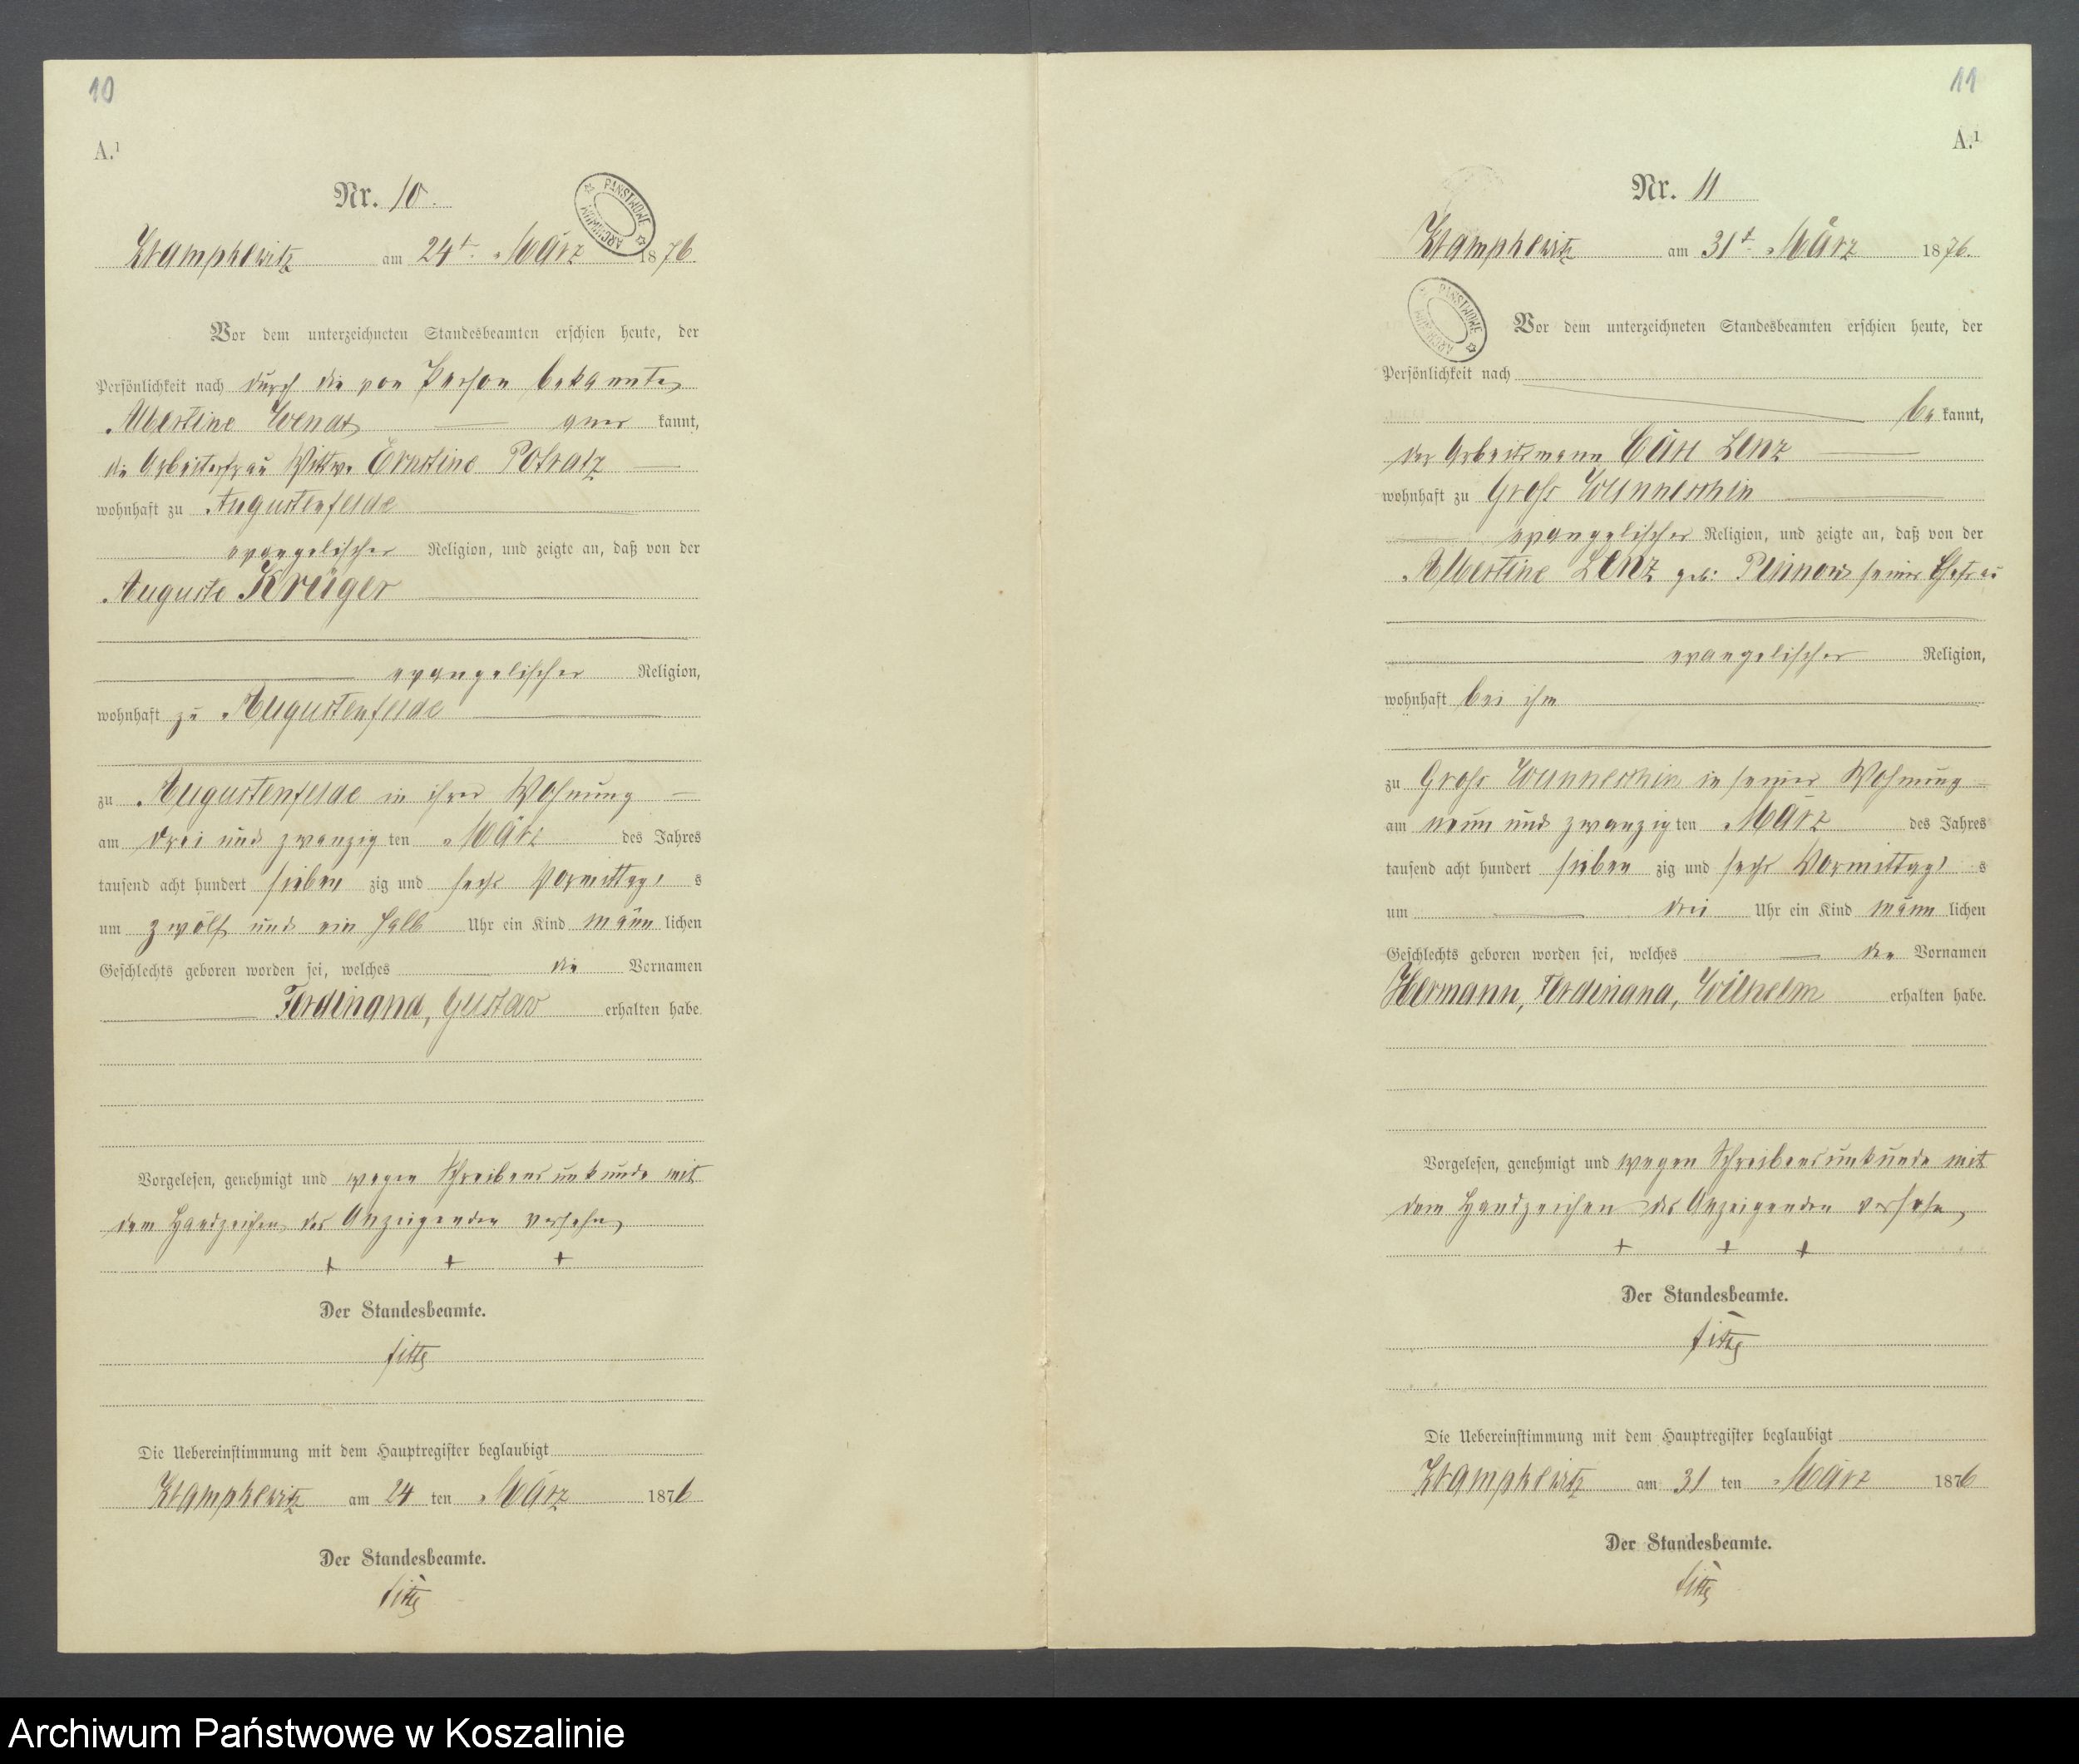 10
A.¹
Nr. 10.
Krampkewitz am 24t. März 1876.
PAŃSTWOWE ARCHIWUM
Vor dem unterzeichneten Standesbeamten erschien heute, der
Persönlichkeit nach durch die von Person bekannte
Albertine Wendt — aner kannt,
die Arbeiterfrau Wittwe Ernstine Potratz —
wohnhaft zu Augustenfelde
evangelischer Religion, und zeigte an, daß von der
Auguste Krüger
evangelischer Religion,
wohnhaft zu Augustenfelde
zu Augustenfelde in ihrer Wohnung —
am drei und zwanzig ten März des Jahres
tausend acht hundert sieben zig und sechs Vormittags s
um zwölf und ein halb Uhr ein Kind männ lichen
Geschlechts geboren worden sei, welches — die Vornamen
Ferdinand, Gustav erhalten habe.
Vorgelesen, genehmigt und wegen Schreibensunkunde mit
dem Handzeichen des Anzeigenden versehen
+ + +
Der Standesbeamte.
Die Uebereinstimmung mit dem Hauptregister beglaubigt
Krampkewitz am 24 ten März 1876
Der Standesbeamte.
11
A.¹
Nr. 11
Krampkewitz am 31t. März 1876.
PAŃSTWOWE ARCHIWUM
Vor dem unterzeichneten Standesbeamten erschien heute, der
Persönlichkeit nach
be kannt,
der Arbeitsmann Carl Lenz —
wohnhaft zu Gross Wunneschin
evangelischer Religion, und zeigte an, daß von der
Albertine Lenz geb: Pinnow seiner Ehefrau
evangelischer Religion,
wohnhaft bei ihm
zu Gross Wunneschin in seiner Wohnung —
am neun und zwanzig ten März des Jahres
tausend acht hundert sieben zig und sechs Vormittags s
um — drei Uhr ein Kind männ lichen
Geschlechts geboren worden sei, welches — die Vornamen
Hermann, Ferdinand, Wilhelm erhalten habe.
Vorgelesen, genehmigt und wegen Schreibensunkunde mit
dem Handzeichen des Anzeigenden versehen
+ + +
Der Standesbeamte.
Die Uebereinstimmung mit dem Hauptregister beglaubigt
Krampkewitz am 31 ten März 1876
Der Standesbeamte.
Archiwum Państwowe w Koszalinie